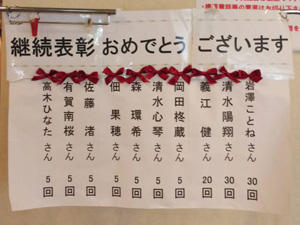 継続表彰 おめでとう ございます
岩澤ことねさん 30回
清水陽翔さん 30回
義江 健さん 20回
岡田柊蔵さん 5回
清水心琴さん 5回
森 環希さん 5回
佃 果穂さん 5回
佐藤 渚さん 5回
有賀南桜さん 5回
高木ひなたさん 5回